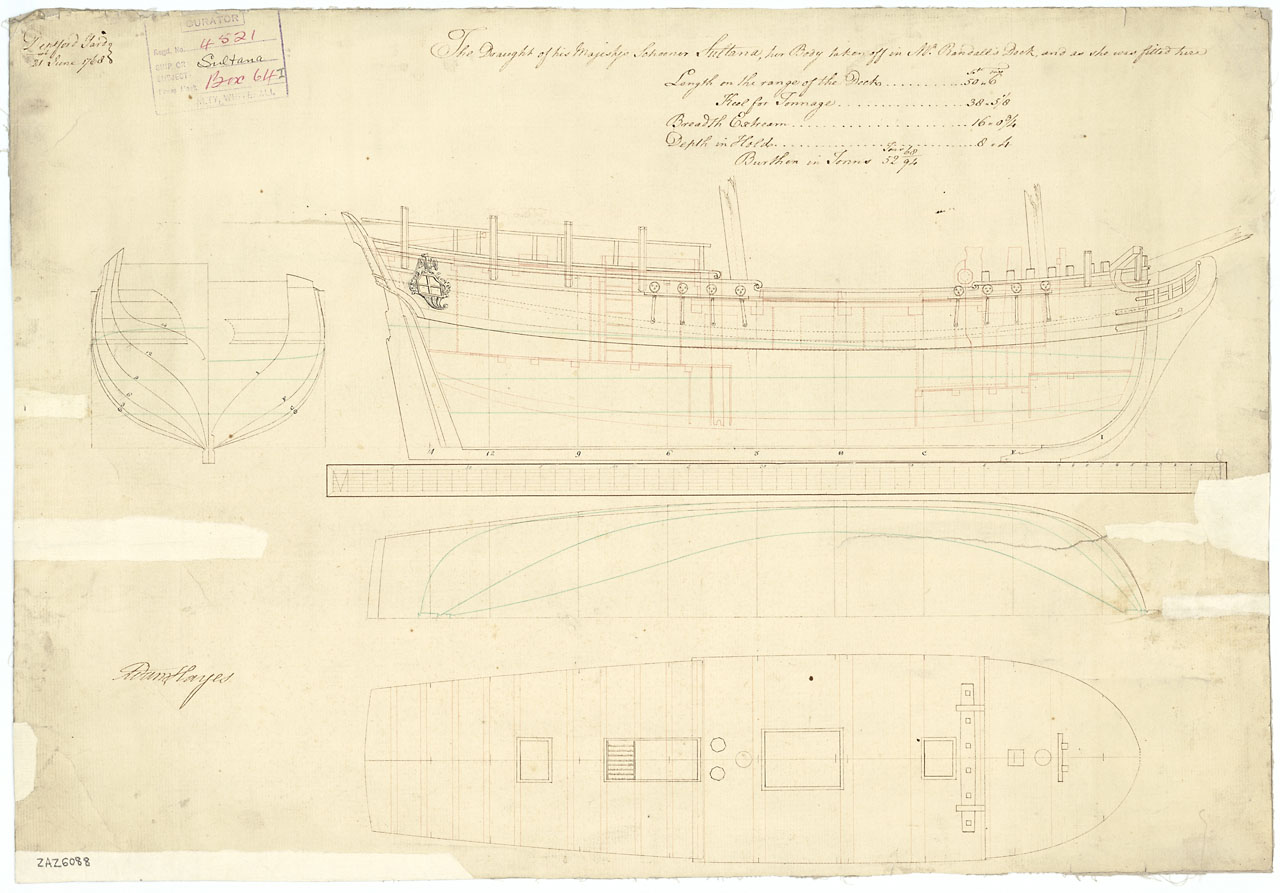 Deptford Yard
21 June 1768
CURATOR
Regd. No. 4821
SHIP OR SUBJECT Sultana
Box 64 I
The Draught of his Majestys Schooner Sultana, her Body taken off in Mr. Randall's Dock, and as she was fitted here
Ft Ins
Length on the range of the Deck 50 .. 6
Keel for Tonnage 38 .. 5 1/8
Breadth Extream 16 .. 0 3/4
Depth in Hold 8 .. 4
Burthen in Tonns 52 68/94
12 9 6 3 C F 1
Adam Hayes
ZAZ6088